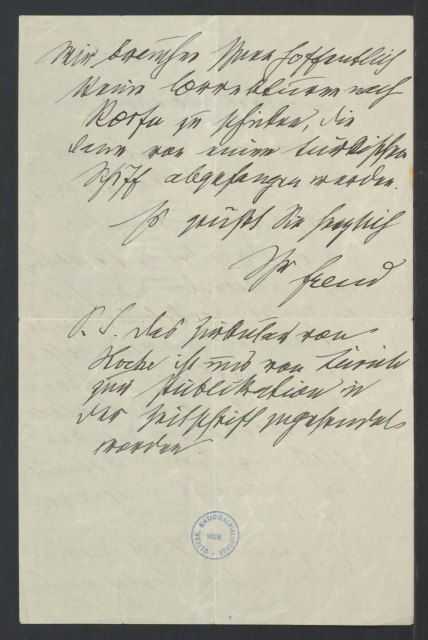 Wir brauchen Ihnen hoffentlich
keine Correkturen nach
Korfu zu schicken, die
dann von einem türkischen
Schiff abgefangen werden.
Es grüßt Sie herzlich
Ihr Freud
P. S. Das Zirkular von
ist uns von Zürich
zur Publikation in
der Zeitschrift zugesendet
worden
OESTERR. NATIONALBIBLIOTHEK
WIEN